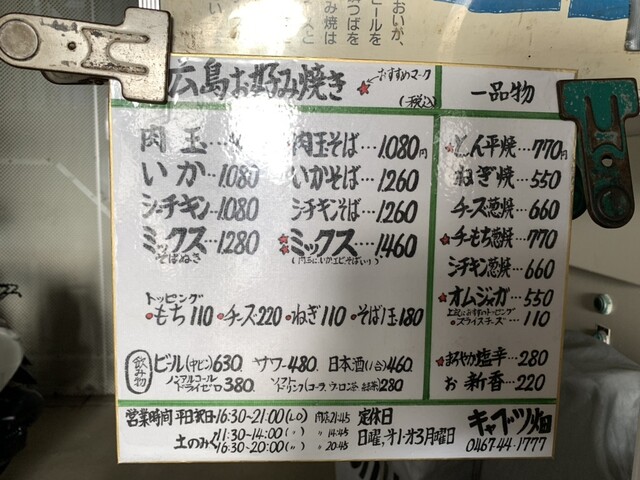 おいが、
ビールを
广島お好み焼き
おすすめマーク
(税込)
肉玉
いか…1.080
シーチキン…1.080
ミックス…1280
そばぬき
肉玉そば…1.080円
いかそば…1.260
シチキンそば…1.260
ミックス…1460
トッピング
もち110 チーズ220 ねぎ110 そば1玉180
飲み物
ビール(中ビン)630. サワー480. 日本酒(1合)460.
ノンアルコール ドライゼロ 380. ソフトドリンク(コーラ、ウーロン茶 緑茶)280
一品物
とん平焼…770円
ねぎ焼…550
チーズ葱焼…660
チーもち葱焼…770
シチキン葱焼…660
オムジャガ…550
上記におすすめトッピング
・スライスチーズ…110
まろやか塩辛…280
お新香…220
営業時間 平日祝日 16:30-21:00(LO) 閉店21:45
土のみ 11:30-14:00(〃) 〃14:45
16:30-20:00(〃) 〃20:45
定休日
日曜,第1・第3月曜日
キャプツ畑
0467-44-1777